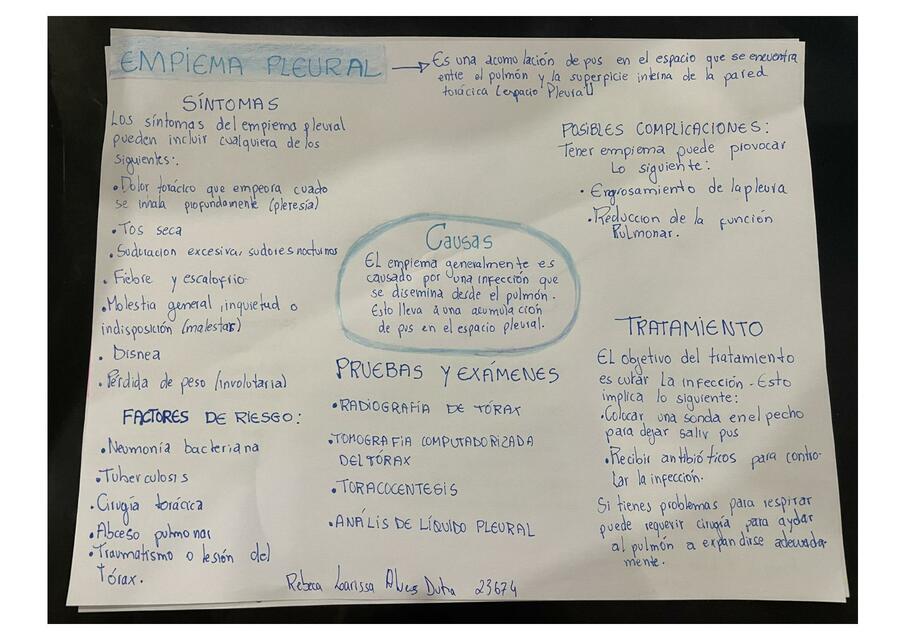 EMPIEMA PLEURAL
Es una acomulación de pus en el espacio que se encuentra
entre el pulmón y la superficie interna de la pared
torácica (espacio Pleural)
SÍNTOMAS
Los síntomas del empiema pleural
pueden incluir cualquiera de los
siguientes:
• Dolor torácico que empeora cuado
se inhala profundamente (pleresía)
• Tos seca
• Suduracion excesiva, sudores nocturnos
• Fiebre y escalofrio
• Molestia general, inquietud o
indisposición (malestar)
• Disnea
• Pérdida de peso (involutaria)
FACTORES DE RIESGO:
• Neumonía bacteriana
• Tuberculosis
• Cirugía torácica
• Abceso pulmonar
• Traumatismo o lesión del
Tórax.
Causas
El empiema generalmente es
causado por una infección que
se disemina desde el pulmón.
Esto lleva a una acumulación
de pus en el espacio pleural.
PRUEBAS Y EXÁMENES
• RADIOGRAFÍA DE TÓRAX
• TOMOGRAFIA COMPUTADORIZADA
DEL TÓRAX
• TORACOCENTESIS
• ANÁLIS DE LÍQUIDO PLEURAL
POSIBLES COMPLICACIONES:
Tener empiema puede provocar
Lo siguiente:
• Engrosamiento de la pleura
• Reduccion de la función
Pulmonar.
TRATAMIENTO
El objetivo del tratamiento
es curar la infección. Esto
implica lo siguiente:
• Colocar una sonda en el pecho
para dejar salir pus
• Recibir antibióticos para contro-
lar la infección.
Si tienes problemas para respirar
puede requerir cirugía para aydar
al pulmón a expandirse adecuada
mente.
Rebeca Larissa Alves Dutra 23674